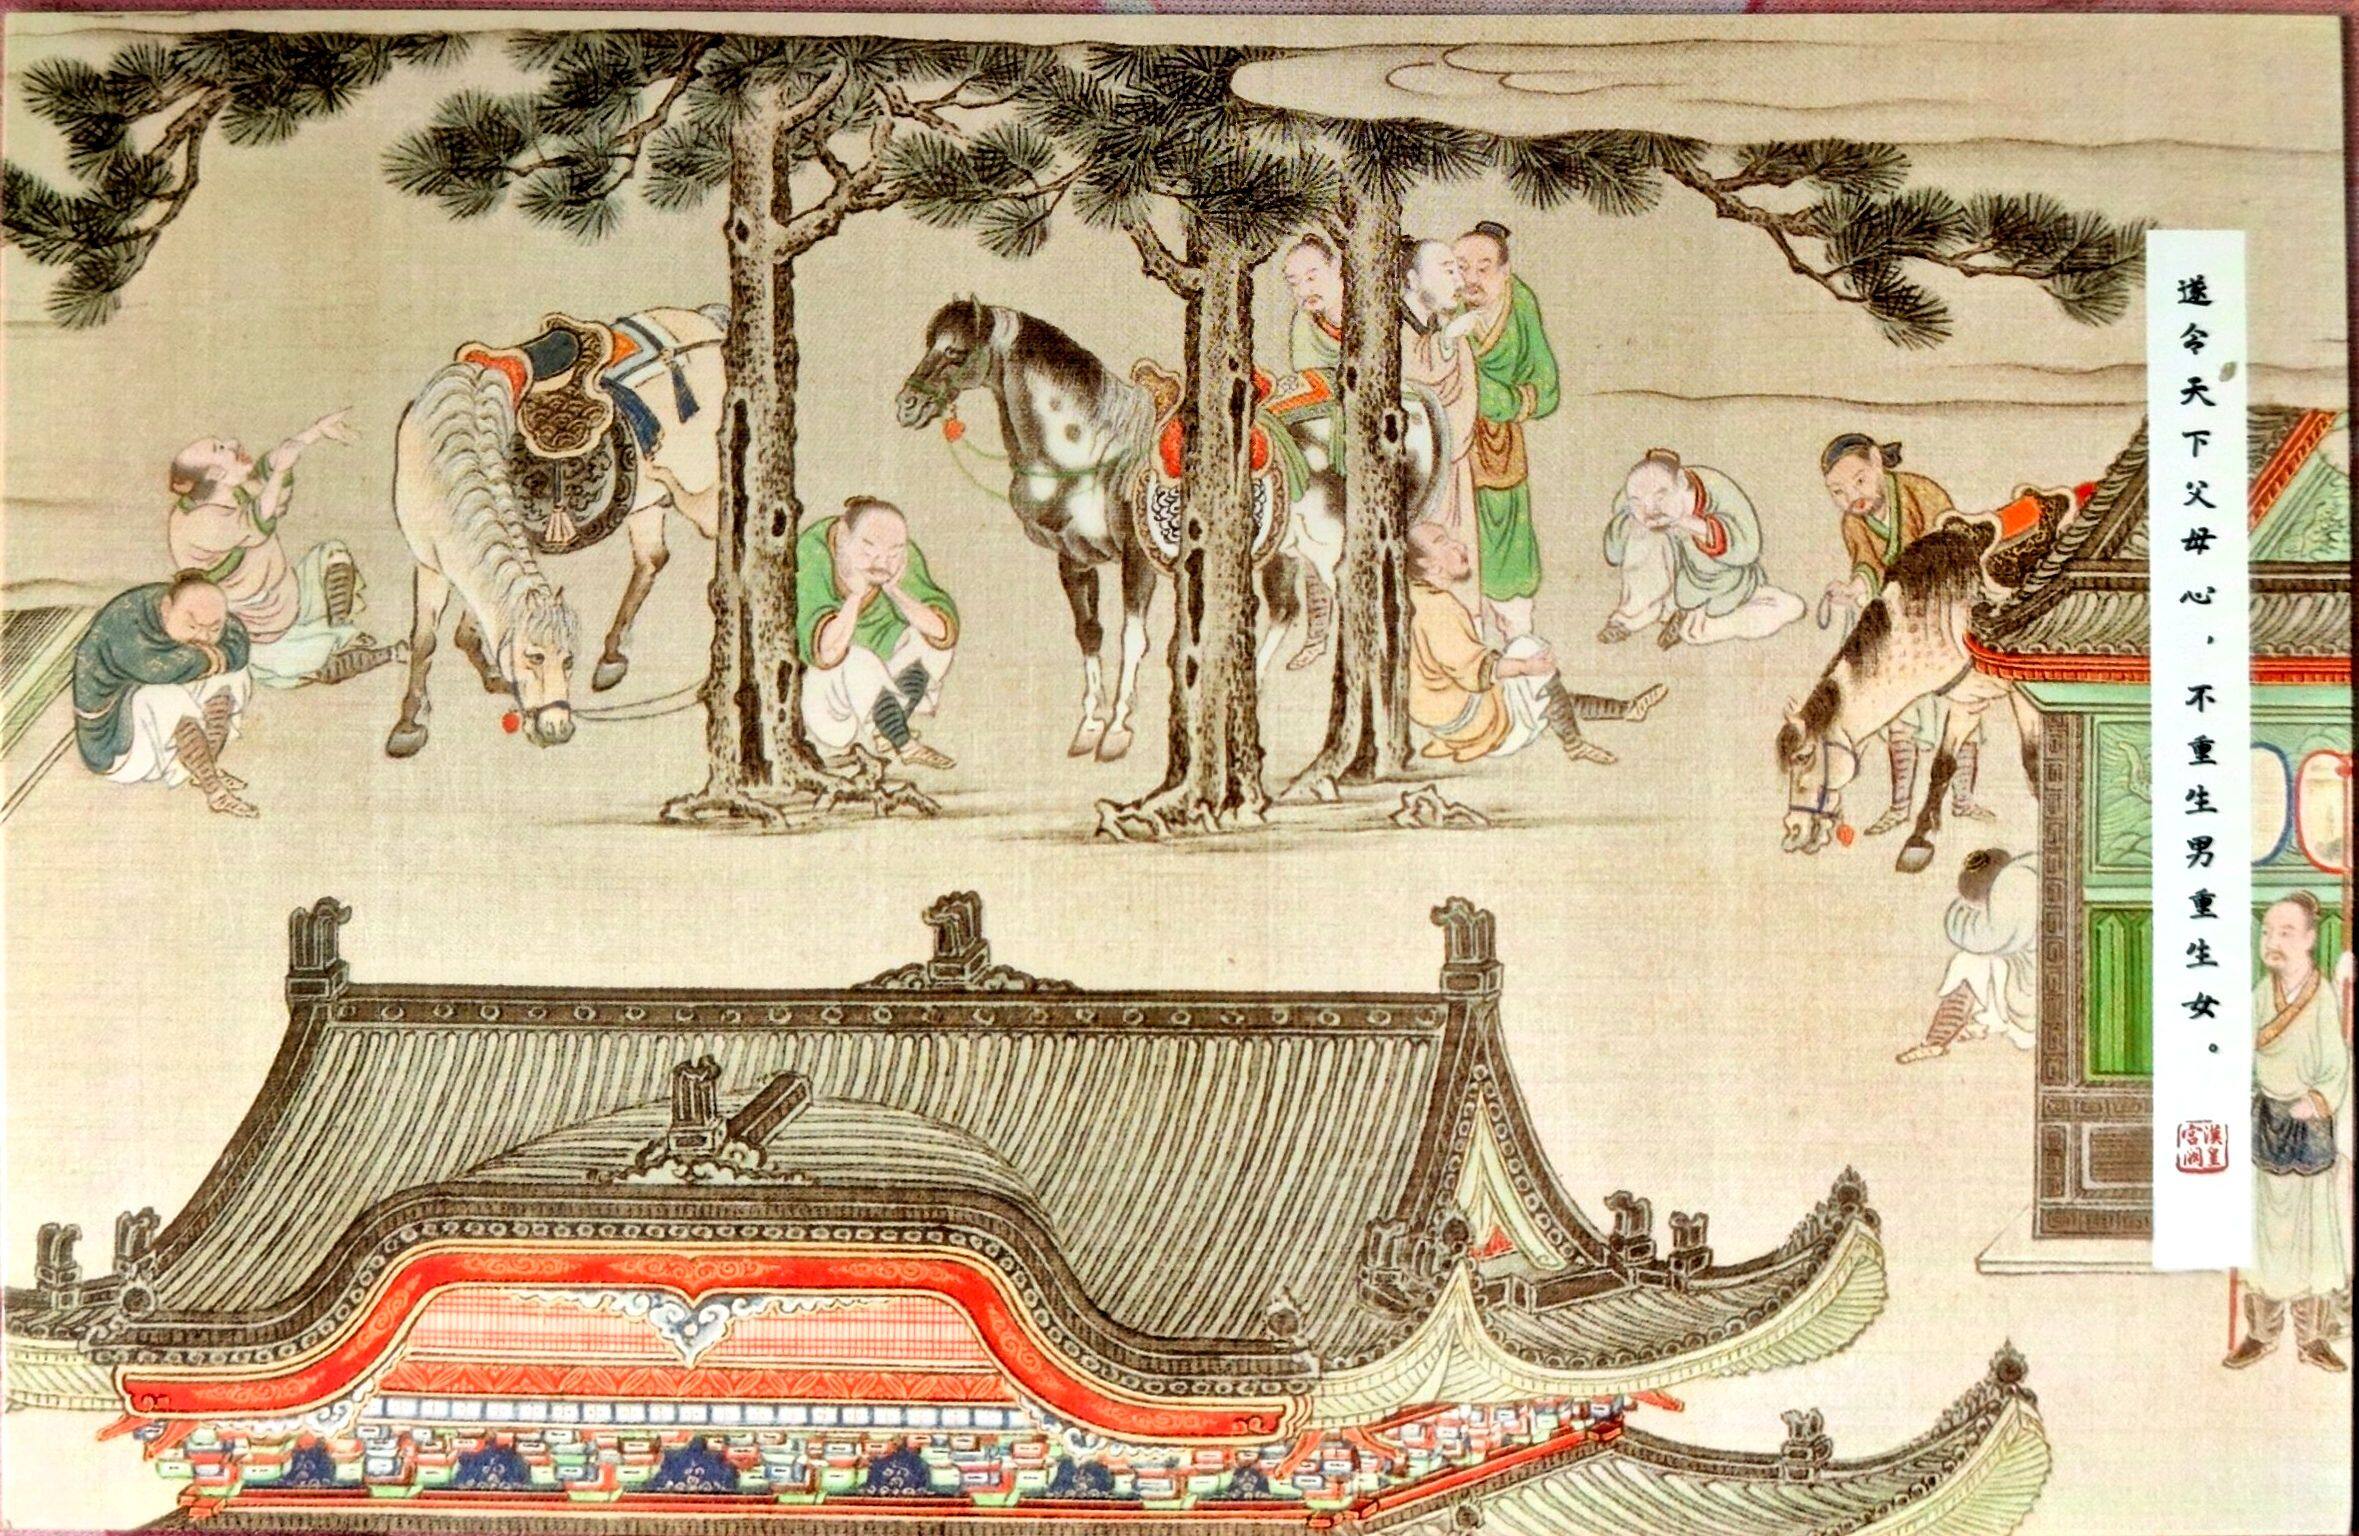 遂令天下父母心，不重生男重生女。
漢皇
宮闕